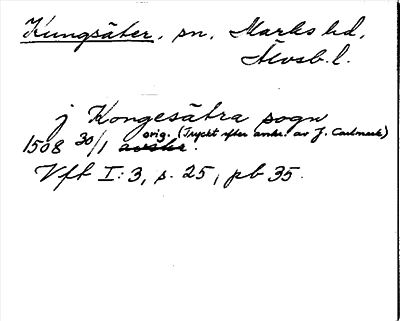 Kungsäter, sn, Marks hd,
Älvsb. l.
j Kongesätra sogn
orig. (Tryckt efter anhr. av J. Carlmark)
1508 30/1 avskr.
Vft I:3, s. 25, pb 35.